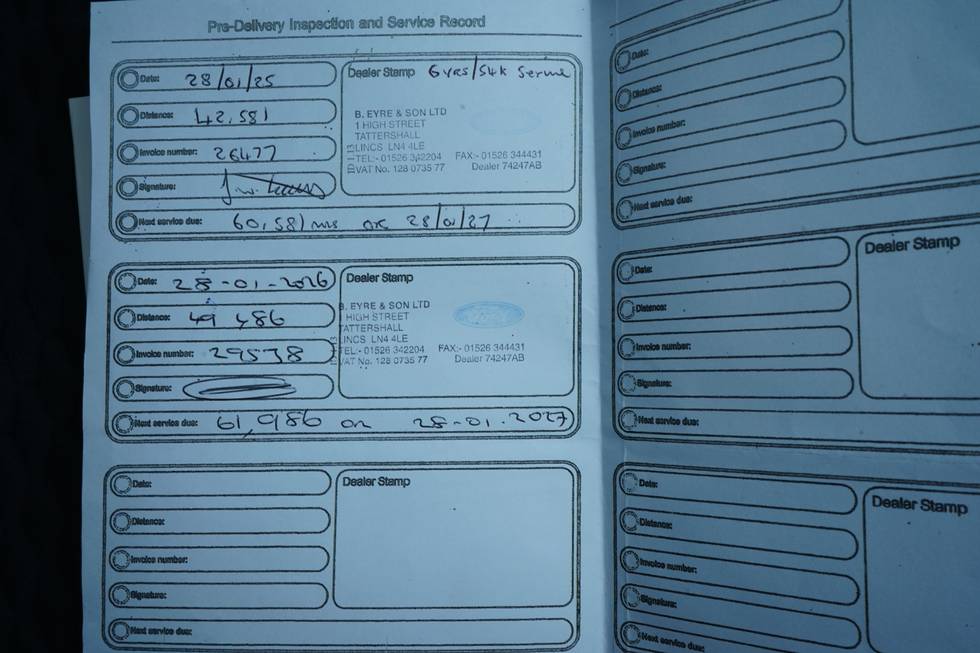 Pre-Delivery Inspection and Service Record
Date: 28/01/25
Distance: 42,581
Invoice number: 26477
Signature:
Next service due: 60,581 mls or 28/01/27
Dealer Stamp 6 yrs/54k Service
B. EYRE & SON LTD
1 HIGH STREET
TATTERSHALL
LINCS LN4 4LE
TEL:- 01526 342204 FAX:- 01526 344431
VAT No. 128 0735 77 Dealer 74247AB
Date: 28-01-2026
Distance: 49 486
Invoice number: 29538
Signature:
Next service due: 61,986 or 28-01.2027
Dealer Stamp
B. EYRE & SON LTD
1 HIGH STREET
TATTERSHALL
LINCS LN4 4LE
TEL:- 01526 342204 FAX:- 01526 344431
VAT No. 128 0735 77 Dealer 74247AB
Ford
Date:
Distance:
Invoice number:
Signature:
Next service due:
Dealer Stamp
Date:
Distance:
Invoice number:
Signature:
Next service due:
Date:
Distance:
Invoice number:
Signature:
Next service due:
Dealer Stamp
Date:
Distance:
Invoice number:
Signature:
Next service due:
Dealer Stamp